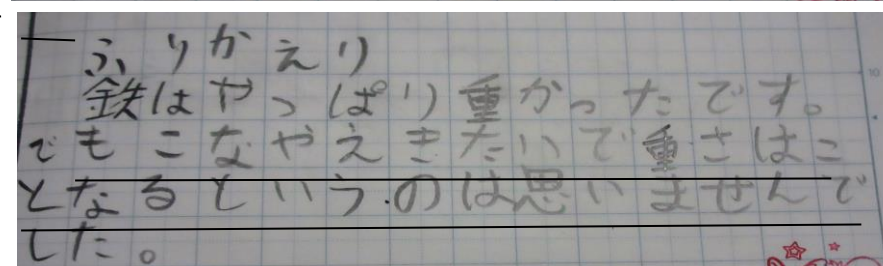 ふりかえり
鉄はやっぱり重かったです。
でもこなやえきたいで重さはこ
となるというのは思いませんで
した。